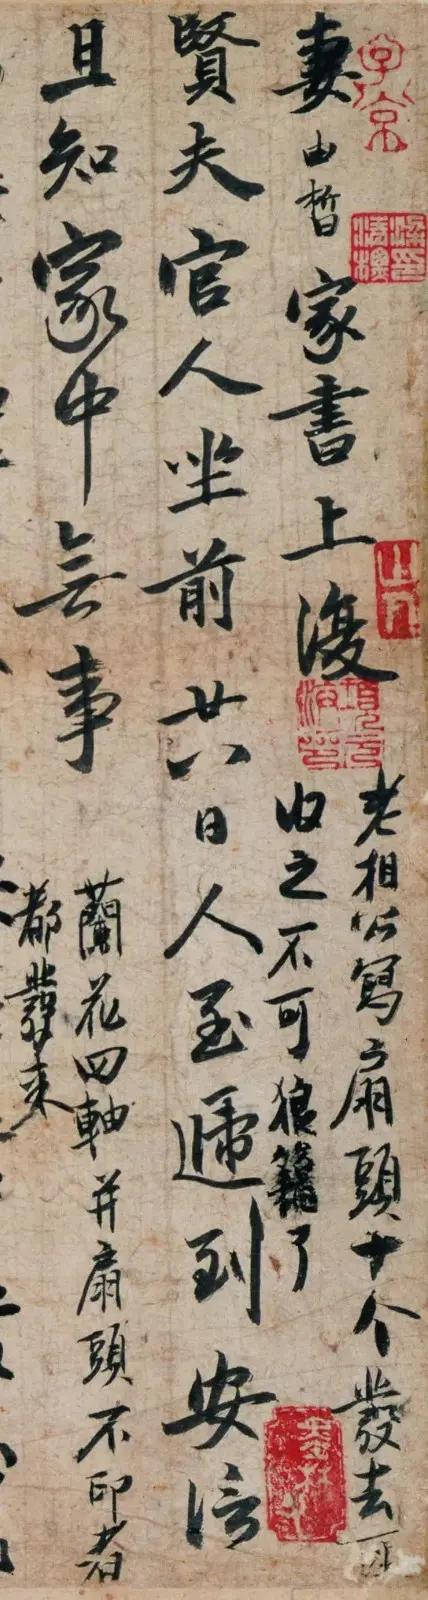 妻由晳家書上復
老相公寫扇頭十个發去可
收之不可狼籍了
賢夫官人坐前廿八日人至遞到安信
且知家中無事
蘭花四軸并扇頭不印者
都發來
子京